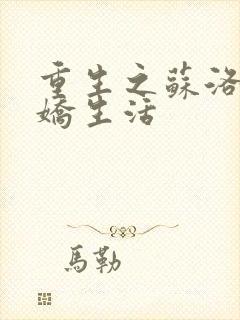 重生之蘇洛
嬌生活
馬勒